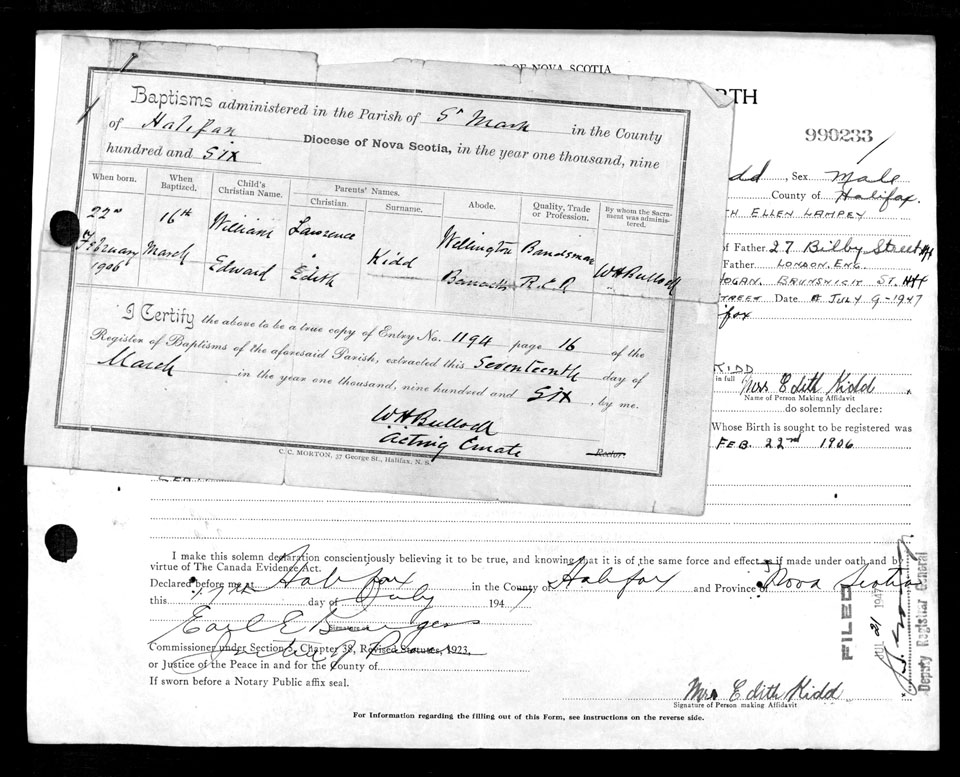 Baptisms administered in the Parish of St Mark in the County
of Halifax Diocese of Nova Scotia, in the year one thousand, nine
hundred and six
When born.
When Baptized.
Child's Christian Name.
Parents' Names.
Christian.
Surname.
Abode.
Quality, Trade or Profession.
By whom the Sacrament was administered.
22nd February 1906
16th March
William Edward
Lawrence
Edith
Kidd
Wellington Barracks
Bandsman
W H Bullock
I Certify the above to be a true copy of Entry No. 1194 page 16 of the
Register of Baptisms of the aforesaid Parish, extracted this Seventeenth day of
March in the year one thousand, nine hundred and six, by me.
W H Bullock
Acting Curate Rector.
C. C. MORTON, 37 George St., Halifax, N. S.
OF NOVA SCOTIA
RTH
990233
dd, Sex Male
County of Halifax.
TH ELLEN LAMPEY
of Father 27 Bilby Street Hfx
Father LONDON, ENG.
HOGAN, BRUNSWICK ST. HFX
STREET Date of JULY 9-1947
fax
KIDD
in full Mrs Edith Kidd
Name of Person Making Affidavit
do solemnly declare:
Whose Birth is sought to be registered was
FEB. 22nd 1906
I make this solemn declaration conscientiously believing it to be true, and knowing that it is of the same force and effect as if made under oath and by
virtue of The Canada Evidence Act.
Declared before me at Halifax in the County of Halifax and Province of Nova Scotia
this day of July 1947
Earl E Burgess
Signature of
Commissioner under Section 5, Chapter 38, Revised Statutes, 1923,
or Justice of the Peace in and for the County of
If sworn before a Notary Public affix seal.
Mrs Edith Kidd
Signature of Person making Affidavit
For Information regarding the filling out of this Form, see instructions on the reverse side.
FILED
JUL 21 1947
Deputy Registrar General